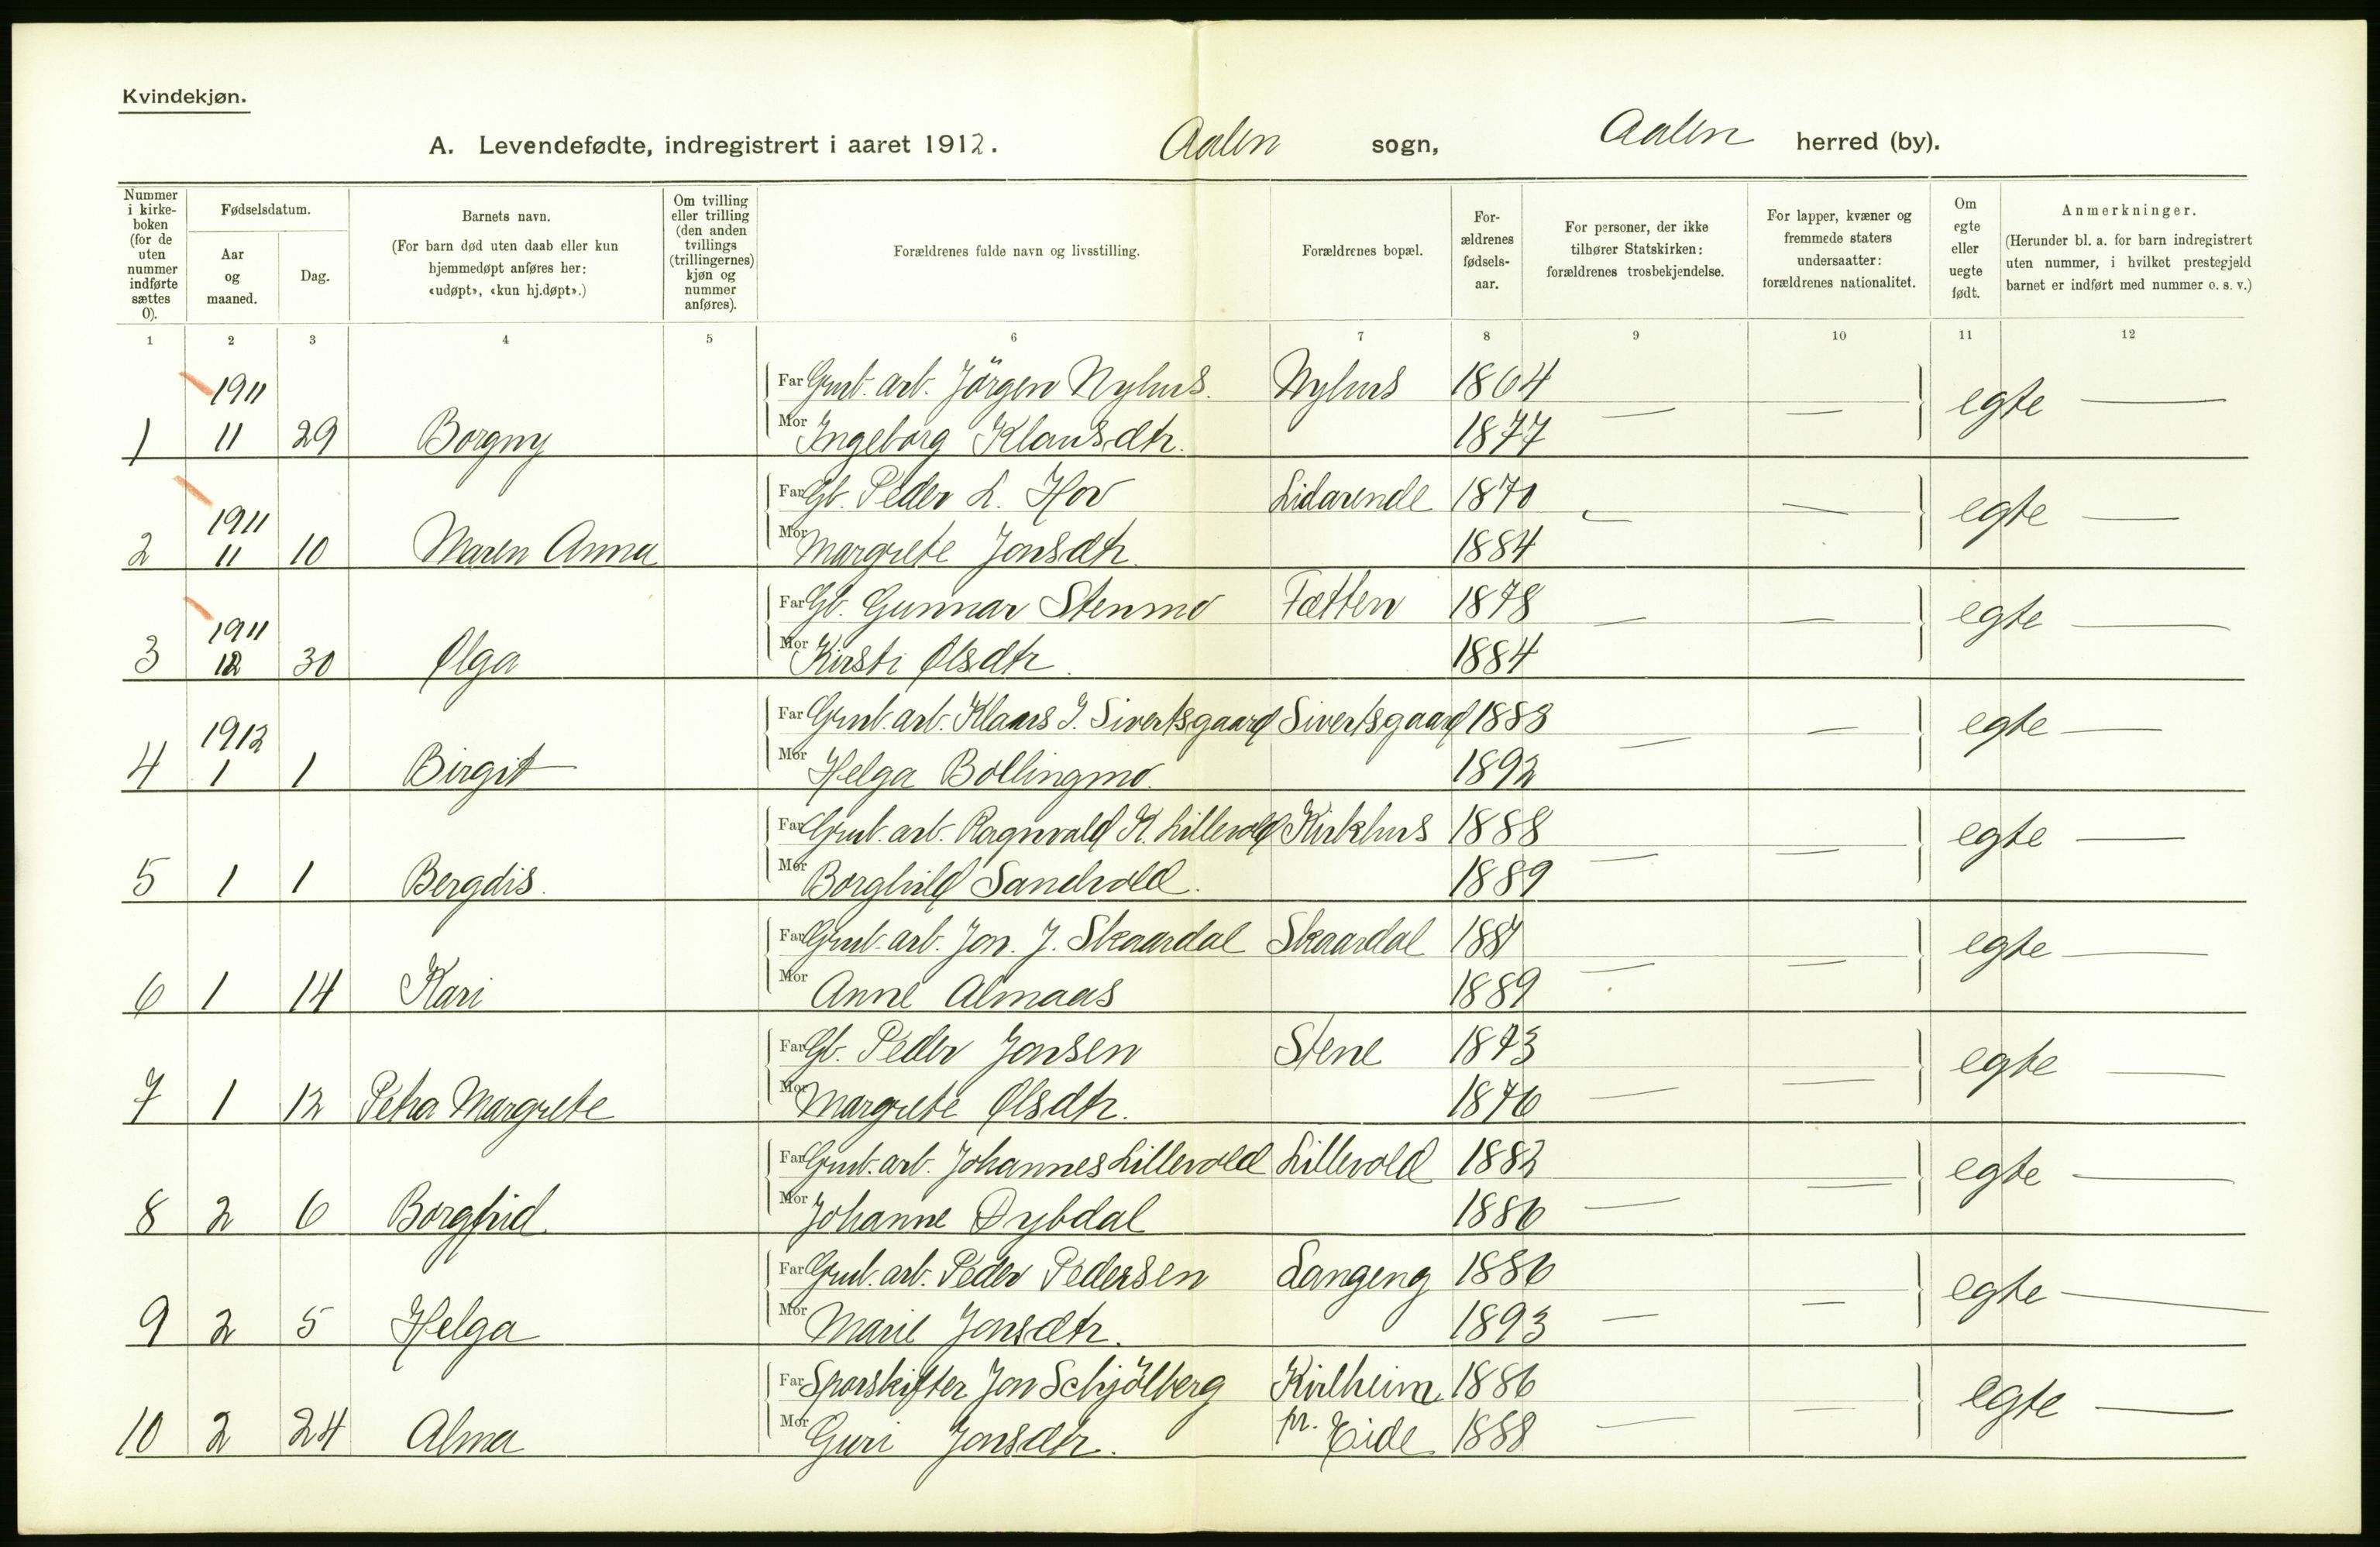 Kvindekjøn.
A. Levendefødte, indregistrert i aaret 1912. Aalen sogn, Aalen herred (by).
Nummer i kirke-boken (for de uten nummer indførte sættes 0). Fødselsdatum. Aar og maaned. Dag. Barnets navn. (For barn død uten daab eller kun hjemmedøpt anføres her: «udøpt», «kun hj.døpt».) Om tvilling eller trilling (den anden tvillings (trillingernes) kjøn og nummer anføres). Forældrenes fulde navn og livsstilling. Forældrenes bopæl. For-ældrenes fødsels-aar. For personer, der ikke tilhører Statskirken: forældrenes trosbekjendelse. For lapper, kvæner og fremmede staters undersaatter: forældrenes nationalitet. Om egte eller uegte født. Anmerkninger. (Herunder bl. a. for barn indregistrert uten nummer, i hvilket prestegjeld barnet er indført med nummer o. s. v.)
1 2 3 4 5 6 7 8 9 10 11 12
1911 Far Grub. arb. Jörgen Nyhus. Nyhus 1864 — — egte —
1 11 29 Borgny Mor Ingeborg Klausdtr. 1877
1911 Far Gb. Peder L. Hov Lidarende 1870 — — egte —
2 11 10 Maren Anna Mor Margrete Jonsdtr. 1884
1911 Far Gb. Gunnar Stenmo Tætten 1878 — — egte —
3 12 30 Olga Mor Kirsti Olsdtr. 1884
1912 Far Grub. arb. Klaus J. Sivertsgaard Sivertsgaard 1888 — — egte —
4 1 1 Birgit Mor Helga Bollingmo. 1892
Far Grub. arb. Ragnvald K. Lillevold Kirkhus 1888 — — egte —
5 1 1 Bergdis. Mor Borghild Sandvold. 1889
Far Grub. arb. Jon. J. Skaardal Skaardal 1887 — — egte —
6 1 14 Kari Mor Anne Almaas 1889
Far Gb. Peder Jonsen Stene 1873 — — egte —
7 1 12 Petra Margrete Mor Margrete Olsdtr. 1876
Far Grub. arb. Johannes Lillevold Lillevold 1882 — — egte —
8 2 6 Mor Johanne Dybdal 1886
Far Grub. arb. Peder Pedersen Langeng 1886 — — egte —
9 2 5 Helga Mor Marie Jonsdtr. 1893
Far Sporskifter Jon Schjölberg 1886 — — egte —
10 2 24 Alma Mor Guri Jonsdtr. pr. Eide 1888